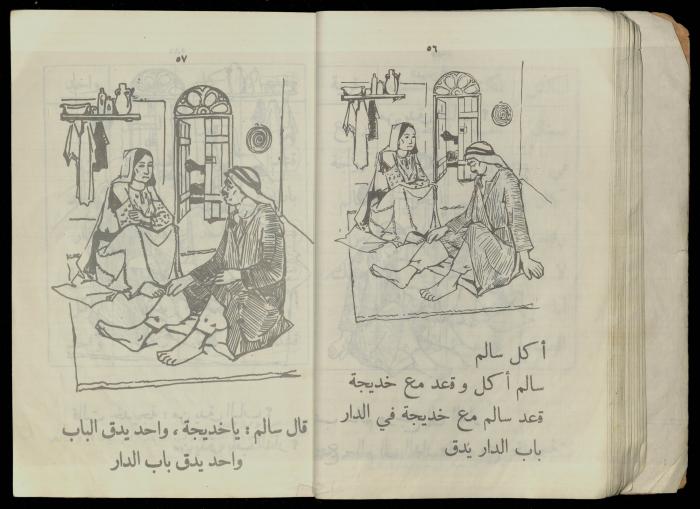 ٥٦
أكل سالم
سالم أكل وقعد مع خديجة
قعد سالم مع خديجة في الدار
باب الدار يدق
٥٧
قال سالم : ياخديجة ، واحد يدق الباب
واحد يدق باب الدار